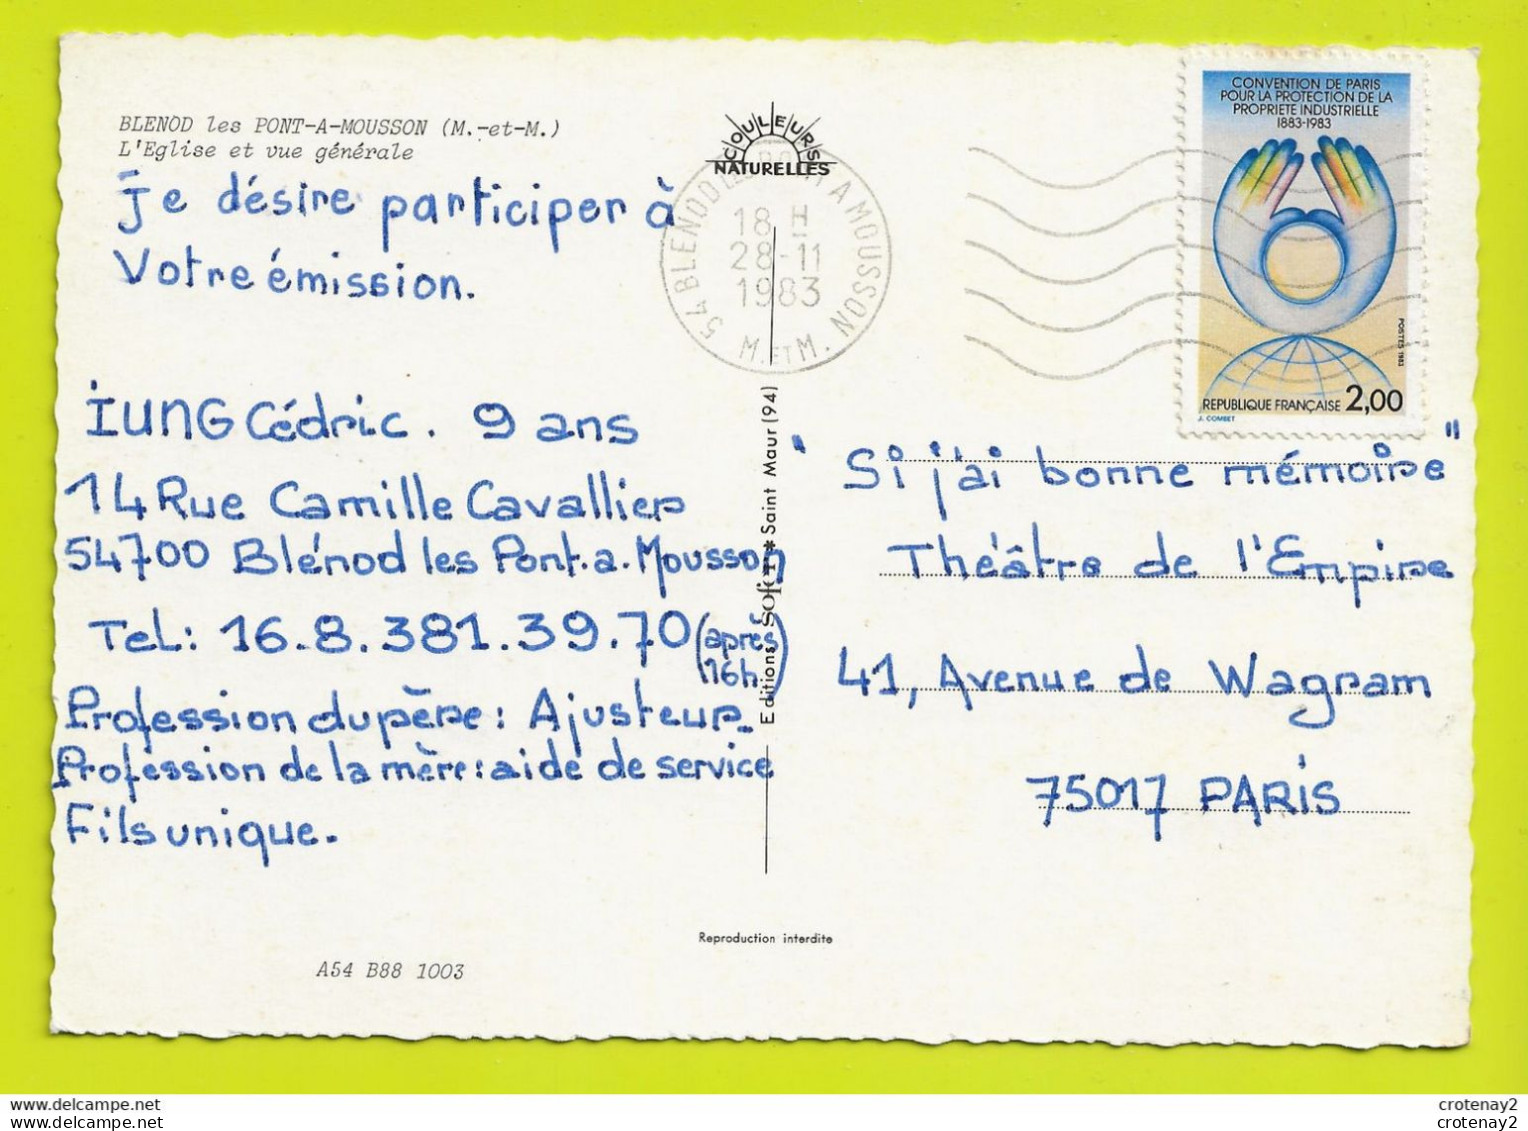 BLENOD les PONT-A-MOUSSON (M.-et-M.)
L'Eglise et vue générale
COULEURS
NATURELLES
Je désire participer à
Votre émission.
IUNG Cédric. 9 ans
14 Rue Camille Cavallier
54700 Blénod les Pont.a.Mousson
Tel: 16.8.381.39.70 (après
16h)
Profession du père: Ajusteur
Profession de la mère: aide de service
Fils unique.
A54 B88 1003
54 BLENOD LES PONT A MOUSSON
18 H
28-11
1983
M. ET M.
Editions Sofer * Saint Maur (94)
Reproduction interdite
CONVENTION DE PARIS
POUR LA PROTECTION DE LA
PROPRIETE INDUSTRIELLE
1883-1983
POSTES 1983
REPUBLIQUE FRANÇAISE 2,00
J. COMBET
"Si j'ai bonne mémoire"
Théâtre de l'Empire
41, Avenue de Wagram
75017 PARIS
crotenay2
crotenay2
crotenay2
crotenay2